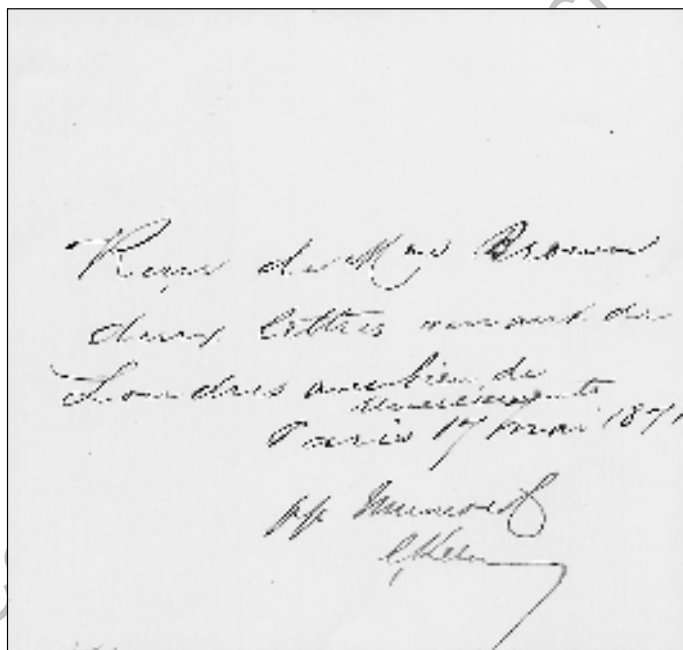 Reçu de Mme Brown
deux lettres venant de
Londres avec bien de
remerciements
Paris 17 mai 1871
pp